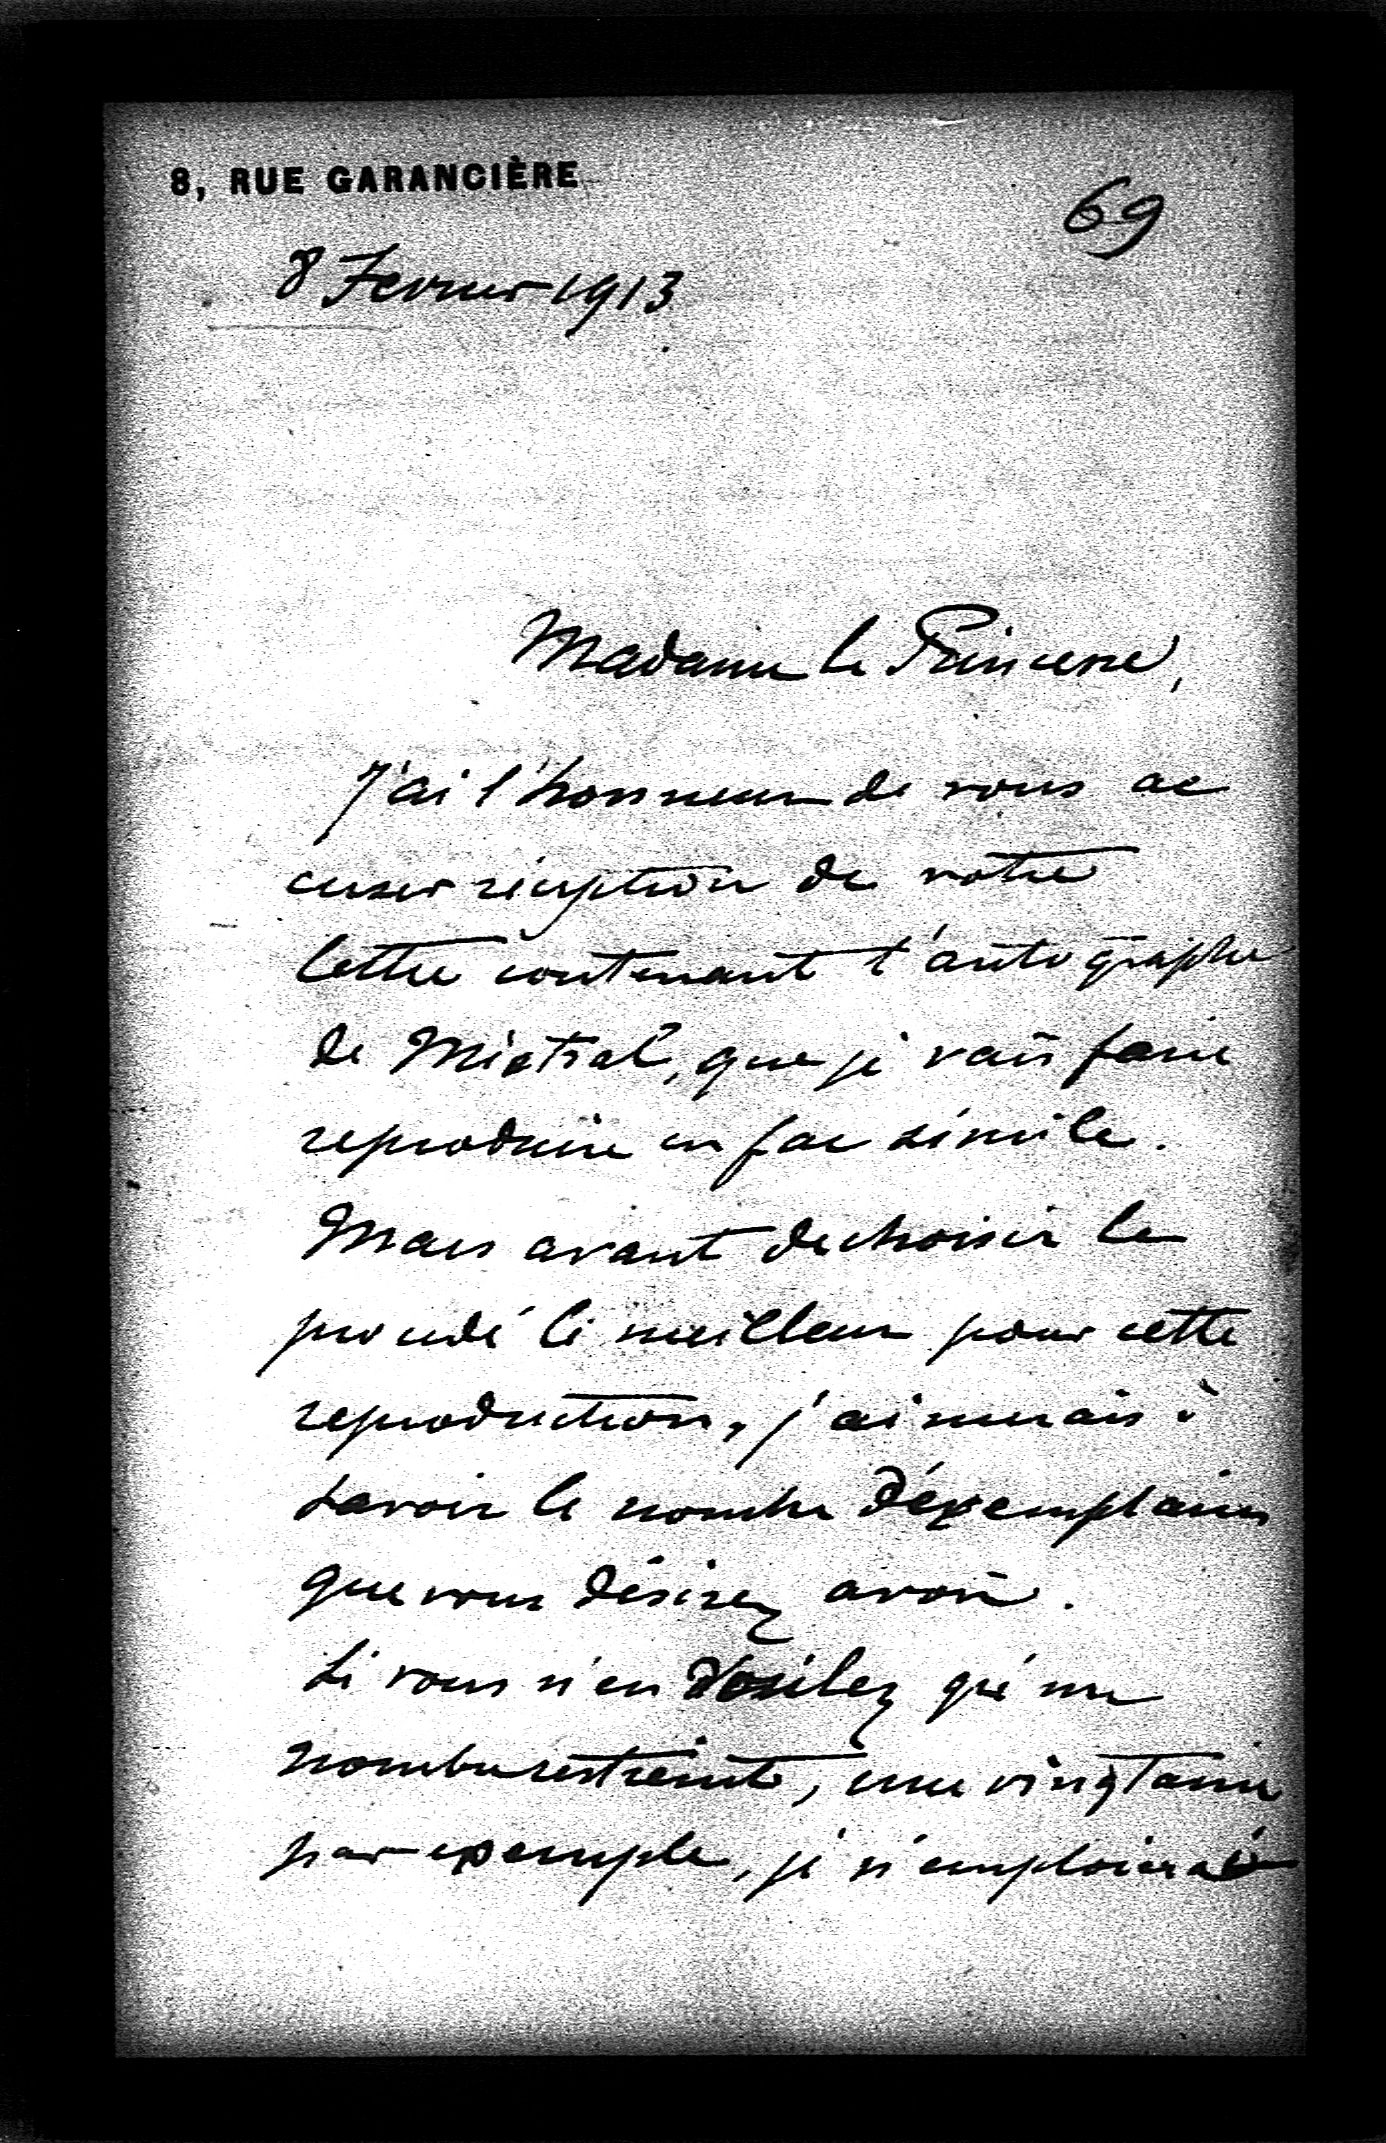 8, RUE GARANCIÈRE
69
8 Fevrier 1913
Madame la Princesse,
J'ai l'honneur de vous ac
cuser réception de votre
lettre contenant l'autographe
de Mistral, que je vais faire
reproduire en fac simile.
Mais avant de choisir le
procédé le meilleur pour cette
reproduction, j'aimerais à
savoir le nombre d'exemplaires
que vous désirez avoir.
Si vous n'en voulez qu'un
nombre restreint, une vingtaine
par exemple, je n'emploierai